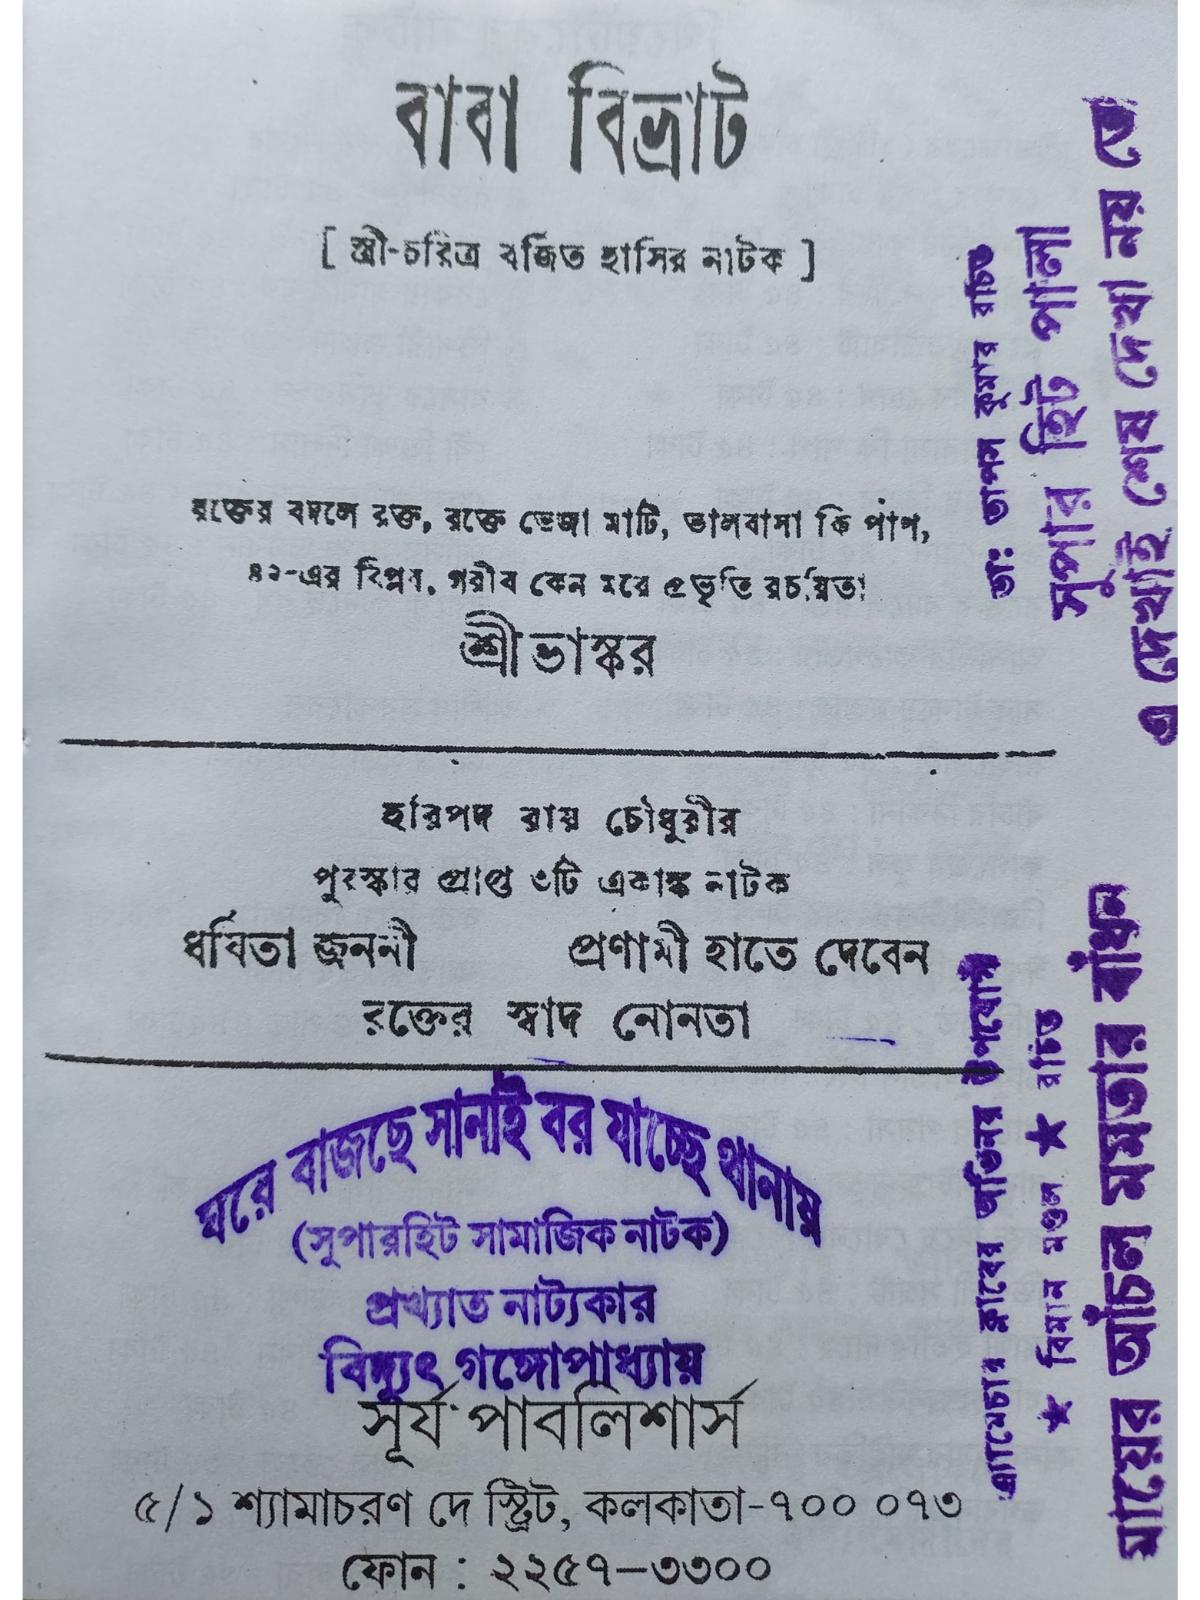 বাবা বিভ্রাট
[ স্ত্রী-চরিত্র বর্জিত হাসির নাটক ]
রক্তের বদলে রক্ত, রক্তে ভেজা মাটি, ভালবাসা কি পাপ,
৪২-এর বিপ্লব, গরীব কেন মরে প্রভৃতি রচয়িতা
শ্রীভাস্কর
হরিপদ রায় চৌধুরীর
পুরস্কার প্রাপ্ত ৩টি একাঙ্ক নাটক
ধর্ষিতা জননী প্রণামী হাতে দেবেন
রক্তের স্বাদ নোনতা
ঘরে বাজছে সানাই বর যাচ্ছে থানায়
(সুপারহিট সামাজিক নাটক)
প্রখ্যাত নাট্যকার
বিদ্যুৎ গঙ্গোপাধ্যায়
সূর্য পাবলিশার্স
৫/১ শ্যামাচরণ দে স্ট্রিট, কলকাতা-৭০০ ০৭৩
ফোন : ২২৫৭–৩৩০০
ডাঃ তাপস কুমার রচিত
সুপার হিট পালা
এ দেখাই শেষ দেখা নয় তো
এ্যামেচার ক্লাবের অভিনয় উপযোগী
★ বিমান মণ্ডল ★ রচিত
মায়ের আঁচল মমতার বাঁধন